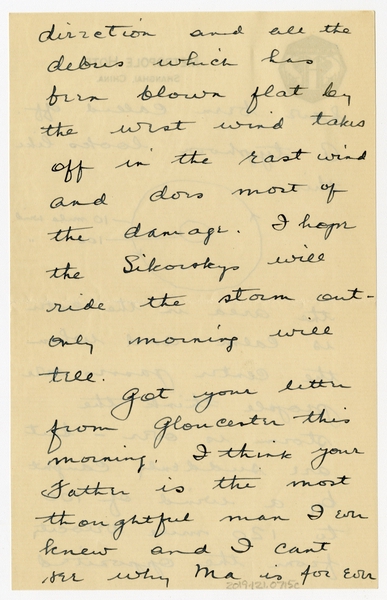 direction and all the
debris which has
been blown flat by
the west wind takes
off in the east wind
and does most of
the damage. I hope
the Sikorskys will
ride the storm out-
only morning will
tell.
Got your letter
from Gloucester this
morning. I think your
Father is the most
thoughtful man I ever
knew and I cant
see why Ma is for ever
2019.121.0715c